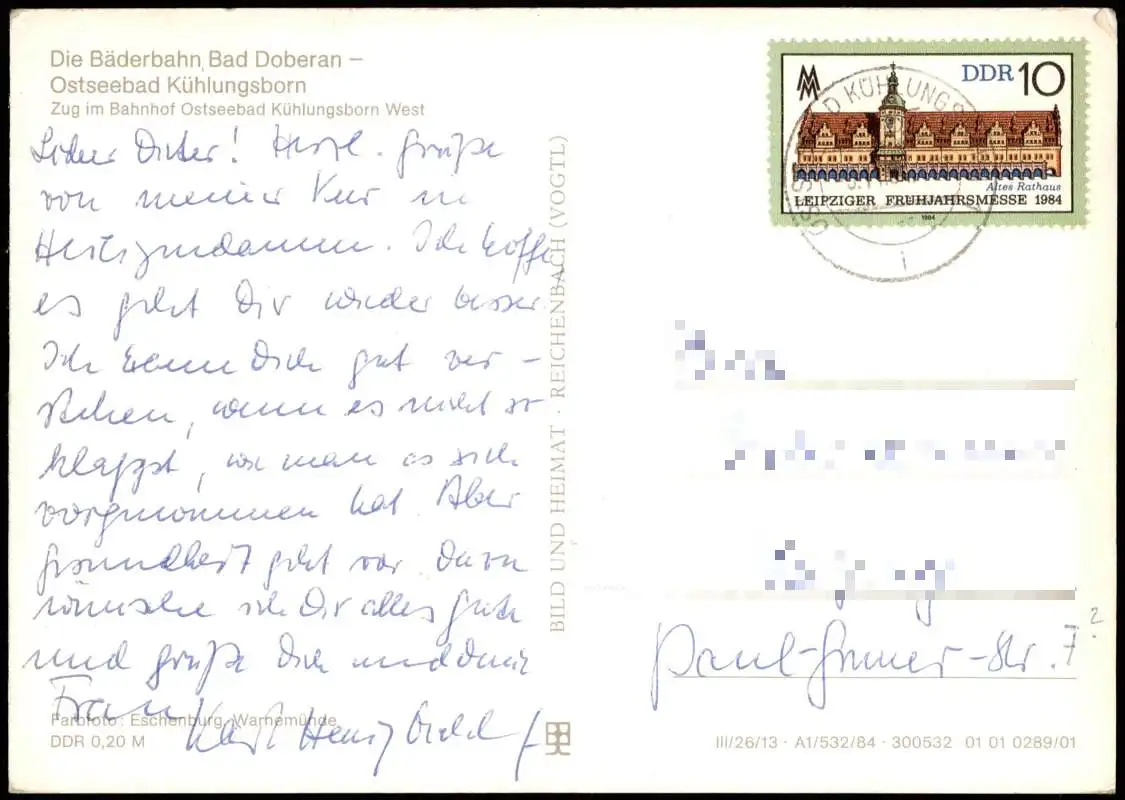 Die Bäderbahn Bad Doberan –
Ostseebad Kühlungsborn
Zug im Bahnhof Ostseebad Kühlungsborn West
Lieber Dieter! Herzl. Grüße
von meiner Kur in
Heiligendamm. Ich hoffe
es geht Dir wieder besser.
Ich kann Dich gut ver-
stehen, wenn es nicht so
klappt, wie man es sich
vorgenommen hat. Aber
Gesundheit geht vor. Dazu
wünsche ich Dir alles Gute
und grüße Dich und Deine
Frau
Karl Heinz
Farbfoto: Eschenburg, Warnemünde
DDR 0,20 M
BILD UND HEIMAT · REICHENBACH (VOGTL)
DDR 10
Altes Rathaus
LEIPZIGER FRÜHJAHRSMESSE 1984
1984
BAD KÜHLUNGS
i
Paul-Gruner-Str. 7?
III/26/13 · A1/532/84 · 300532 01 01 0289/01